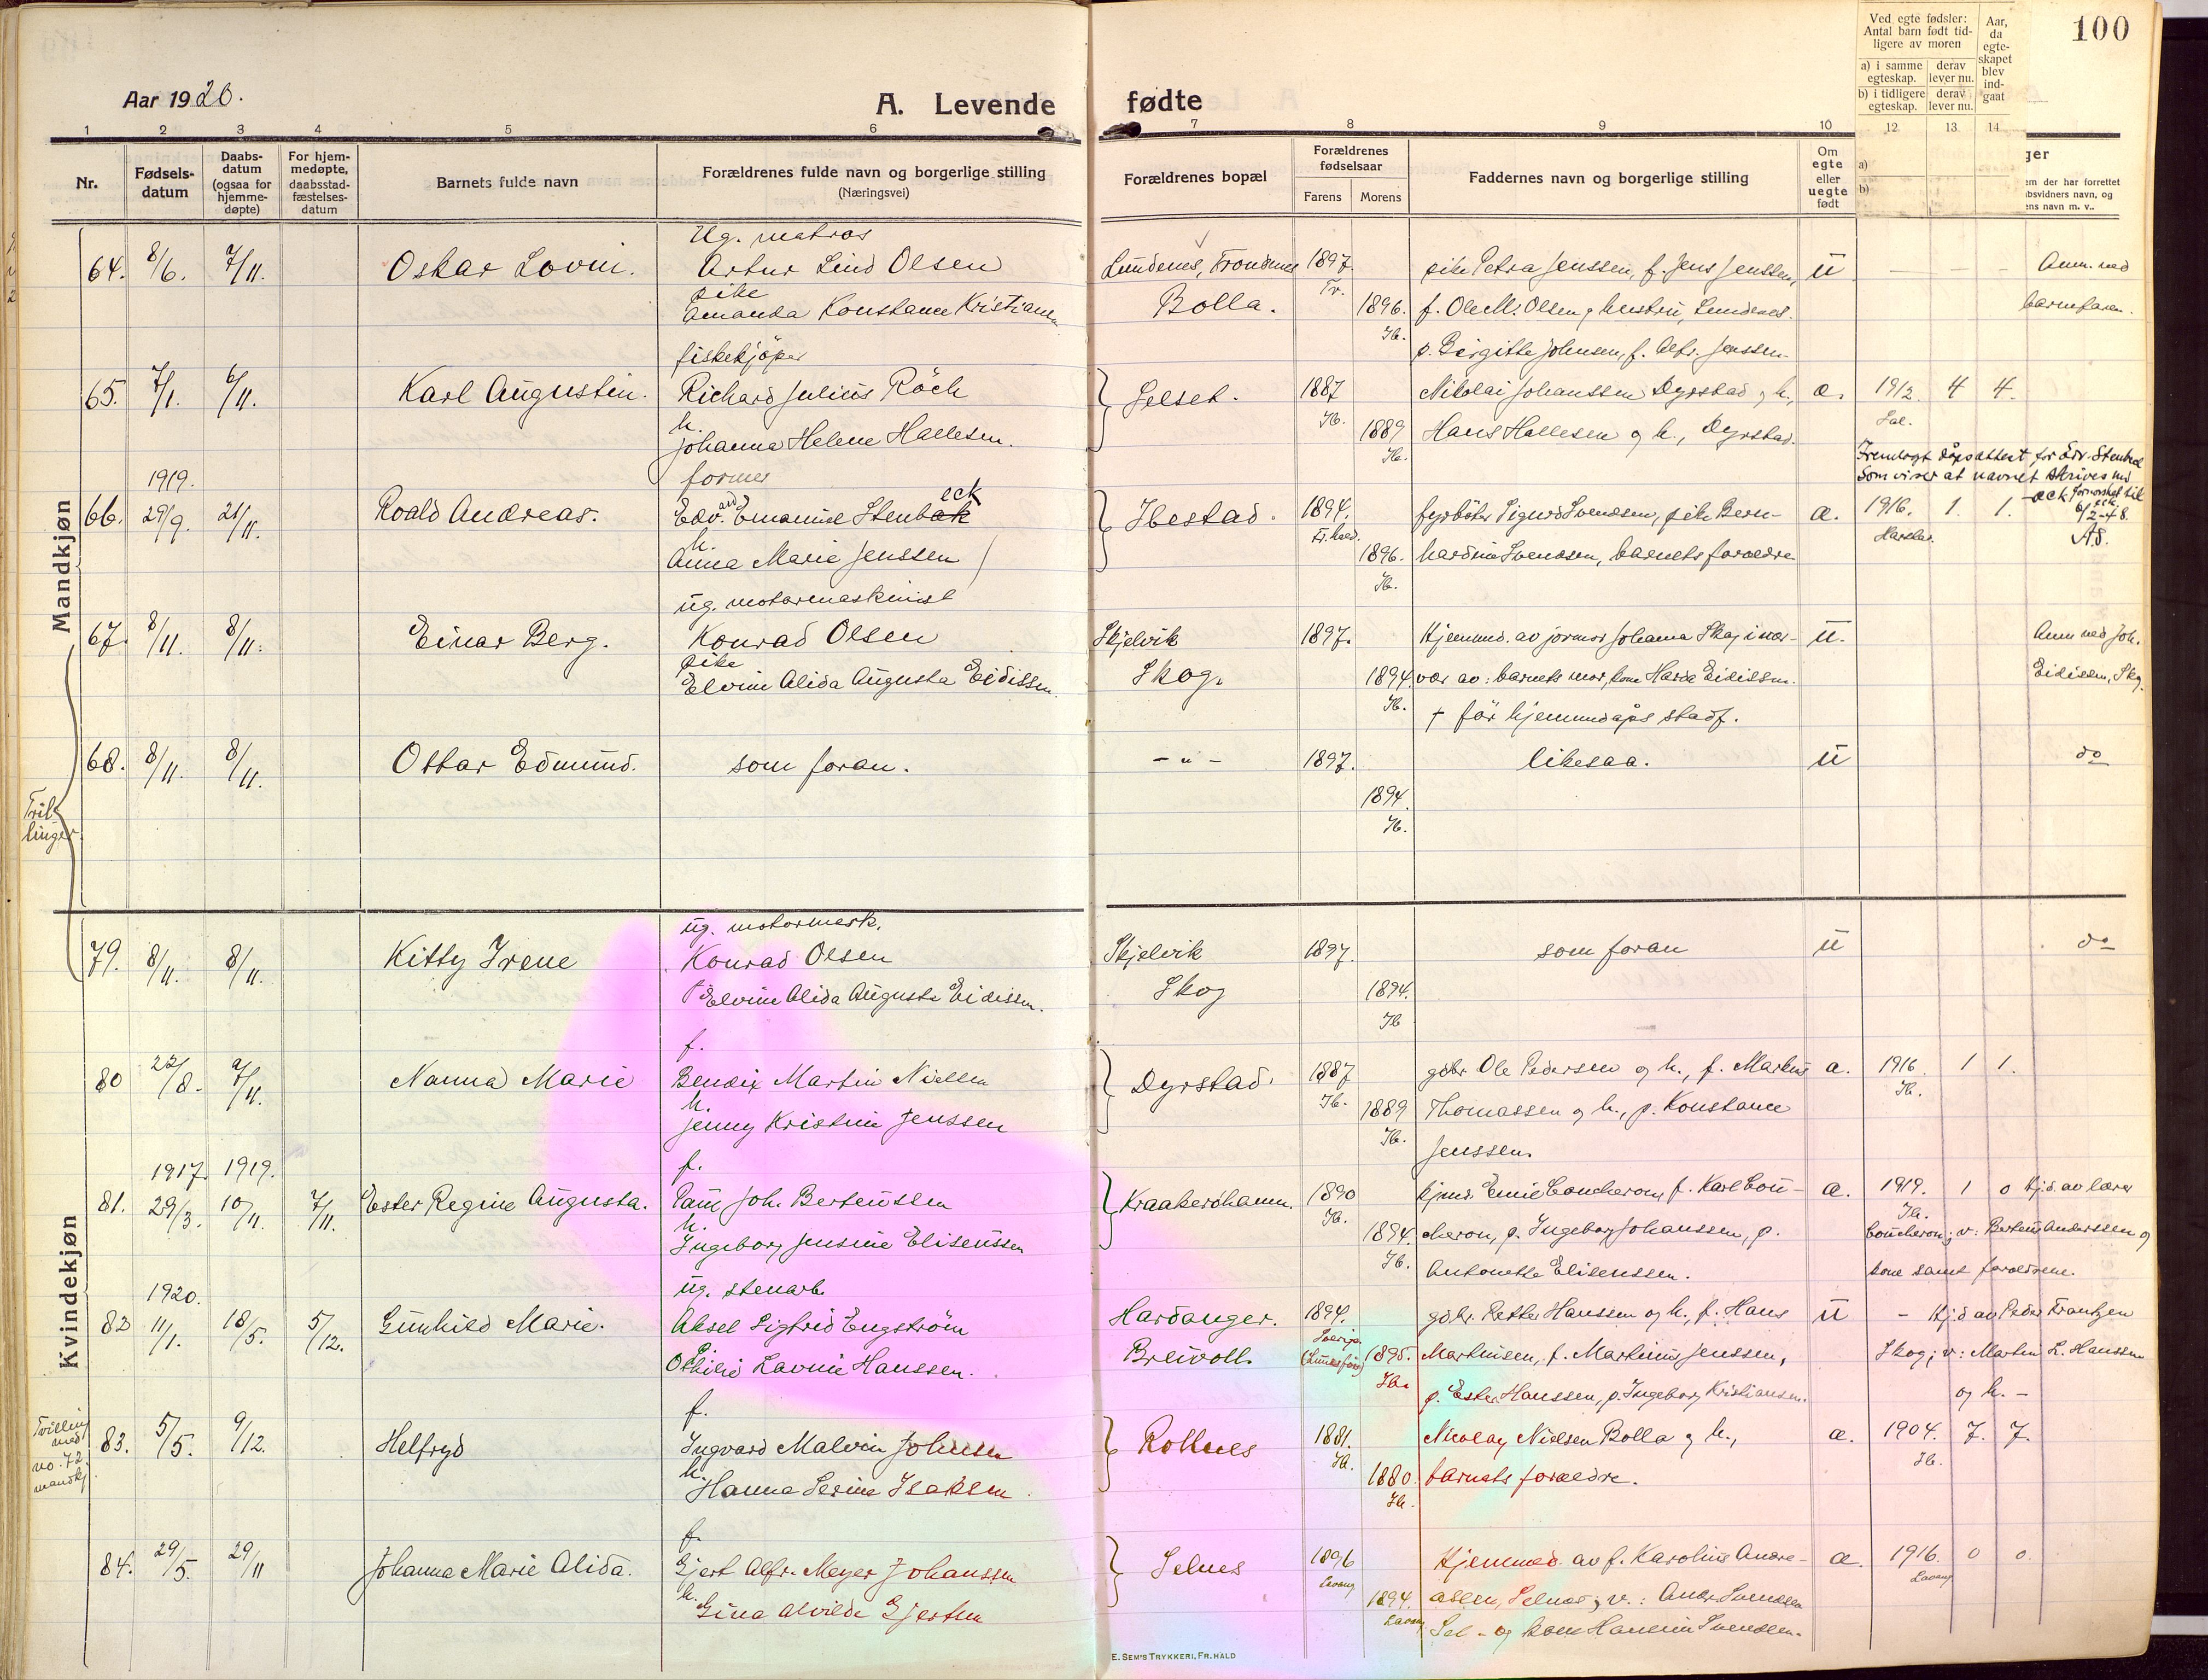 100
Aar 1920.
A. Levende fødte
1 2 3 4 5 6 7 8 9 10 12 13 14
Nr.
Fødsels-
datum
Daabs-
datum
(ogsaa for
hjemme-
døpte)
For hjem-
medøpte,
daabsstad-
fæstelses-
datum
Barnets fulde navn
Forældrenes fulde navn og borgerlige stilling
(Næringsvei)
Forældrenes bopæl
Forældrenes
fødselsaar
Farens Morens
Faddernes navn og borgerlige stilling
Om
egte
eller
uegte
født
Ved egte fødsler:
Antal barn født tid-
ligere av moren
a) i samme
egteskap.
derav
lever nu.
b) i tidligere
egteskap.
derav
lever nu.
Aar,
da
egte-
skapet
blev
ind-
gaat
a)
b)
ger
em der har forrettet
bsvidners navn, og
ens navn m. v..
Mandkjøn
Ug. matros
64. 8/6. 7/11. Oskar Lovin. Artur Lind Olsen Lundenes, Trondenes 1897. pike Petra Jenssen, f. Jens Jenssen, ü — — — Anm. ved
Tr.
pike
Amanda Konstance Kristiansen Bolla. 1896. f. Ole M. Olsen og hustru, Lundenes. barnefaren.
Ib.
p. Birgitte Johnsen, f. Alfr. Jenssen
fiskekjøper
65. 7/1. 6/11. Karl Augustin. Richard Julius Röch Selset. 1887 Nikolai Johanssen Dyrstad og h., æ. 1912. 4 4.
Ib. Sal.
h.
Johanna Helene Hallesen. 1889 Hans Hallesen og h., Dyrstad.
Ib.
Fremlagt dåpsattest for Edv. Stenbeck
som viser at navnet skrives med
-eck
6/2-48.
A.S.
1919. former
66. 29/9. 21/11. Roald Andreas. Edv.ard Emanuel Stenbak eck Ibestad. 1894. fyrböter Sigurd Svendsen, pike Bern- æ. 1916. 1. 1.
Fr.hald. Harstad.
h.
Anna Marie Jenssen 1896. hardine Svendsen, barnets forældre
Ib.
ug. motormaskinist
67. 8/11. 8/11. Einar Berg. Konrad Olsen Skjelvik 1897. Hjemmed. av jormor Johanna Skog i nær- ü. Anm ved Joh.
pike
Elvine Alida Augusta Eidissen. Skog. 1894. vær av: barnets mor, kone Harda Eidissen. Eidissen, Skog.
Ib.
† før hjemmedåps stadf.
68. 8/11. 8/11. Ottar Edmund. som foran. — " — 1897. likesaa. ü do
1894.
Ib.
Tril-
linger.
Kvindekjøn
ug. motormask.
79. 8/11. 8/11. Kitty Irene Konrad Olsen Skjelvik 1897. som foran ü do
p Elvine Alida Augusta Eidissen. Skog 1894.
Ib
f.
80 22/8. 7/11. Nanna Marie Bendix Martin Nielsen Dyrstad. 1887 gdbr. Ole Pedersen og h., f. Martin æ. 1916 1 1.
Ib. Ib.
h.
Jenny Kristine Jenssen 1889 Thomassen og h., p. Konstance
Ib.
Jenssen.
1917. 1919. f.
81. 29/3. 10/11. 7/11. Ester Regine Augusta. Paul Joh. Berteussen Kraakerøhamn. 1890 kjmd. Emil Coucheron, f. Karl Cou- æ. 1919. 1 0 Hj.d. av lærer
Ib. Ib.
h.
Ingeborg Jensine Elisenssen 1894. cheron, p. Ingeborg Johanssen, p. Coucheron; v: Berteus Anderssen og
Ib.
Antonette Elisenssen. kone samt forældrene.
1920. ug. stenarb.
82 11/1. 18/5. 5/12. Gunhild Marie. Aksel Sigfrid Engström Hardanger. 1894. gdbr. Petter Hanssen og h., f. Hans ü — Hj.d av Peder Frantzen
Sverige.
p.
Othilie Lavnie Hanssen. Breivoll. 1895. Martinsen, f. Martinus Jenssen, Skog; v: Martin L. Hanssen
Ib.
p. Ester Hanssen, p. Ingeborg Kristiansen. og h. —
Tvilling
med
no. 72
mandkj.
f.
83. 5/5. 9/12. Helfryd Ingvard Malvin Johnsen Rollnes 1881. Nicolay Nielsen Bolla og h., æ. 1904. 7. 7.
Ib. Ib.
h.
Hanna Serine Isaksen 1880. barnets forældre.
Ib.
f.
84. 29/5. 29/11 Johanna Marie Alida. Gjert Alfr. Meyer Johanssen Selnes 1896 Hjemmed. av f. Karolius Andre- æ. 1916. 0 0.
Lavang Lavang
h.
Gina Alvilde Gjertsen 1894. assen, Selnes; v.: Andr. Svendsen
Lavang
Sel- og kone Hansine Svendsen.
E. SEM'S TRYKKERI, FR.HALD